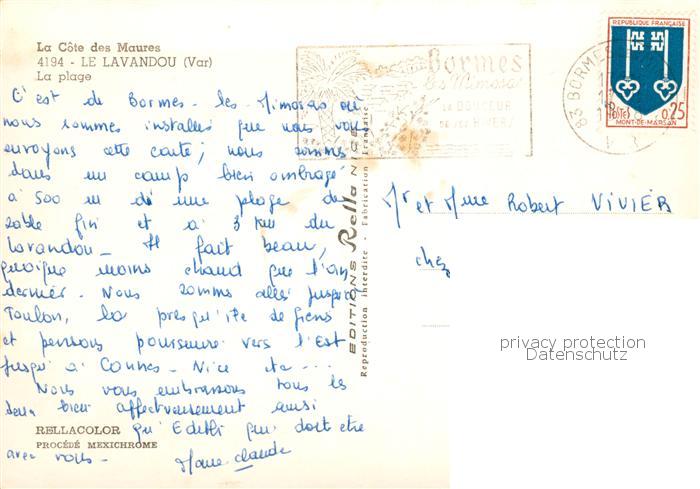 La Côte des Maures
4194 - LE LAVANDOU (Var)
La plage
C'est de Bormes-les-Mimosas où
nous sommes installés que nous vous
envoyons cette carte; nous sommes
dans un camp bien ombragé
à 500 m de une plage de
sable fin et à 3 km du
Lavandou - Il fait beau,
quoique moins chaud que l'an
dernier. Nous sommes allés jusqu'à
Toulon, la presqu'île de giens
et pensons poursuivre vers l'Est
jusqu'à Cannes - Nice etc...
Nous vous embrassons tous les
deux bien affectueusement ainsi
qu'Edith qui doit être
avec vous -
Marie Claude
RELLACOLOR
PROCÉDÉ MEXICHROME
EDITIONS Rella NICE
Reproduction interdite - Fabrication Française
Bormes
les Mimosas
LA DOUCEUR
DE SES HIVERS
83 BORMES
REPUBLIQUE FRANÇAISE
POSTES 0,25
MONT-DE-MARSAN
Mr et Mme Robert VIVIER
chez
privacy protection
Datenschutz